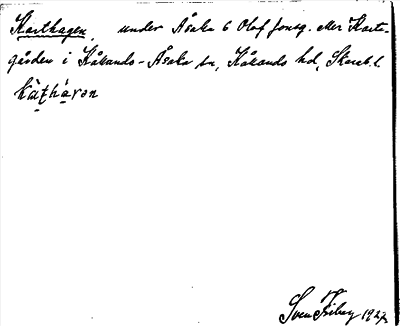 Karthagen, under Åsaka 6 Olof Jonsg. eller Karta-
gården i Kåkands-Åsaka sn, Kåkands hd, Skarab. l.
kạ̈ʈhạ̀ɤən
Sven Friberg 1927